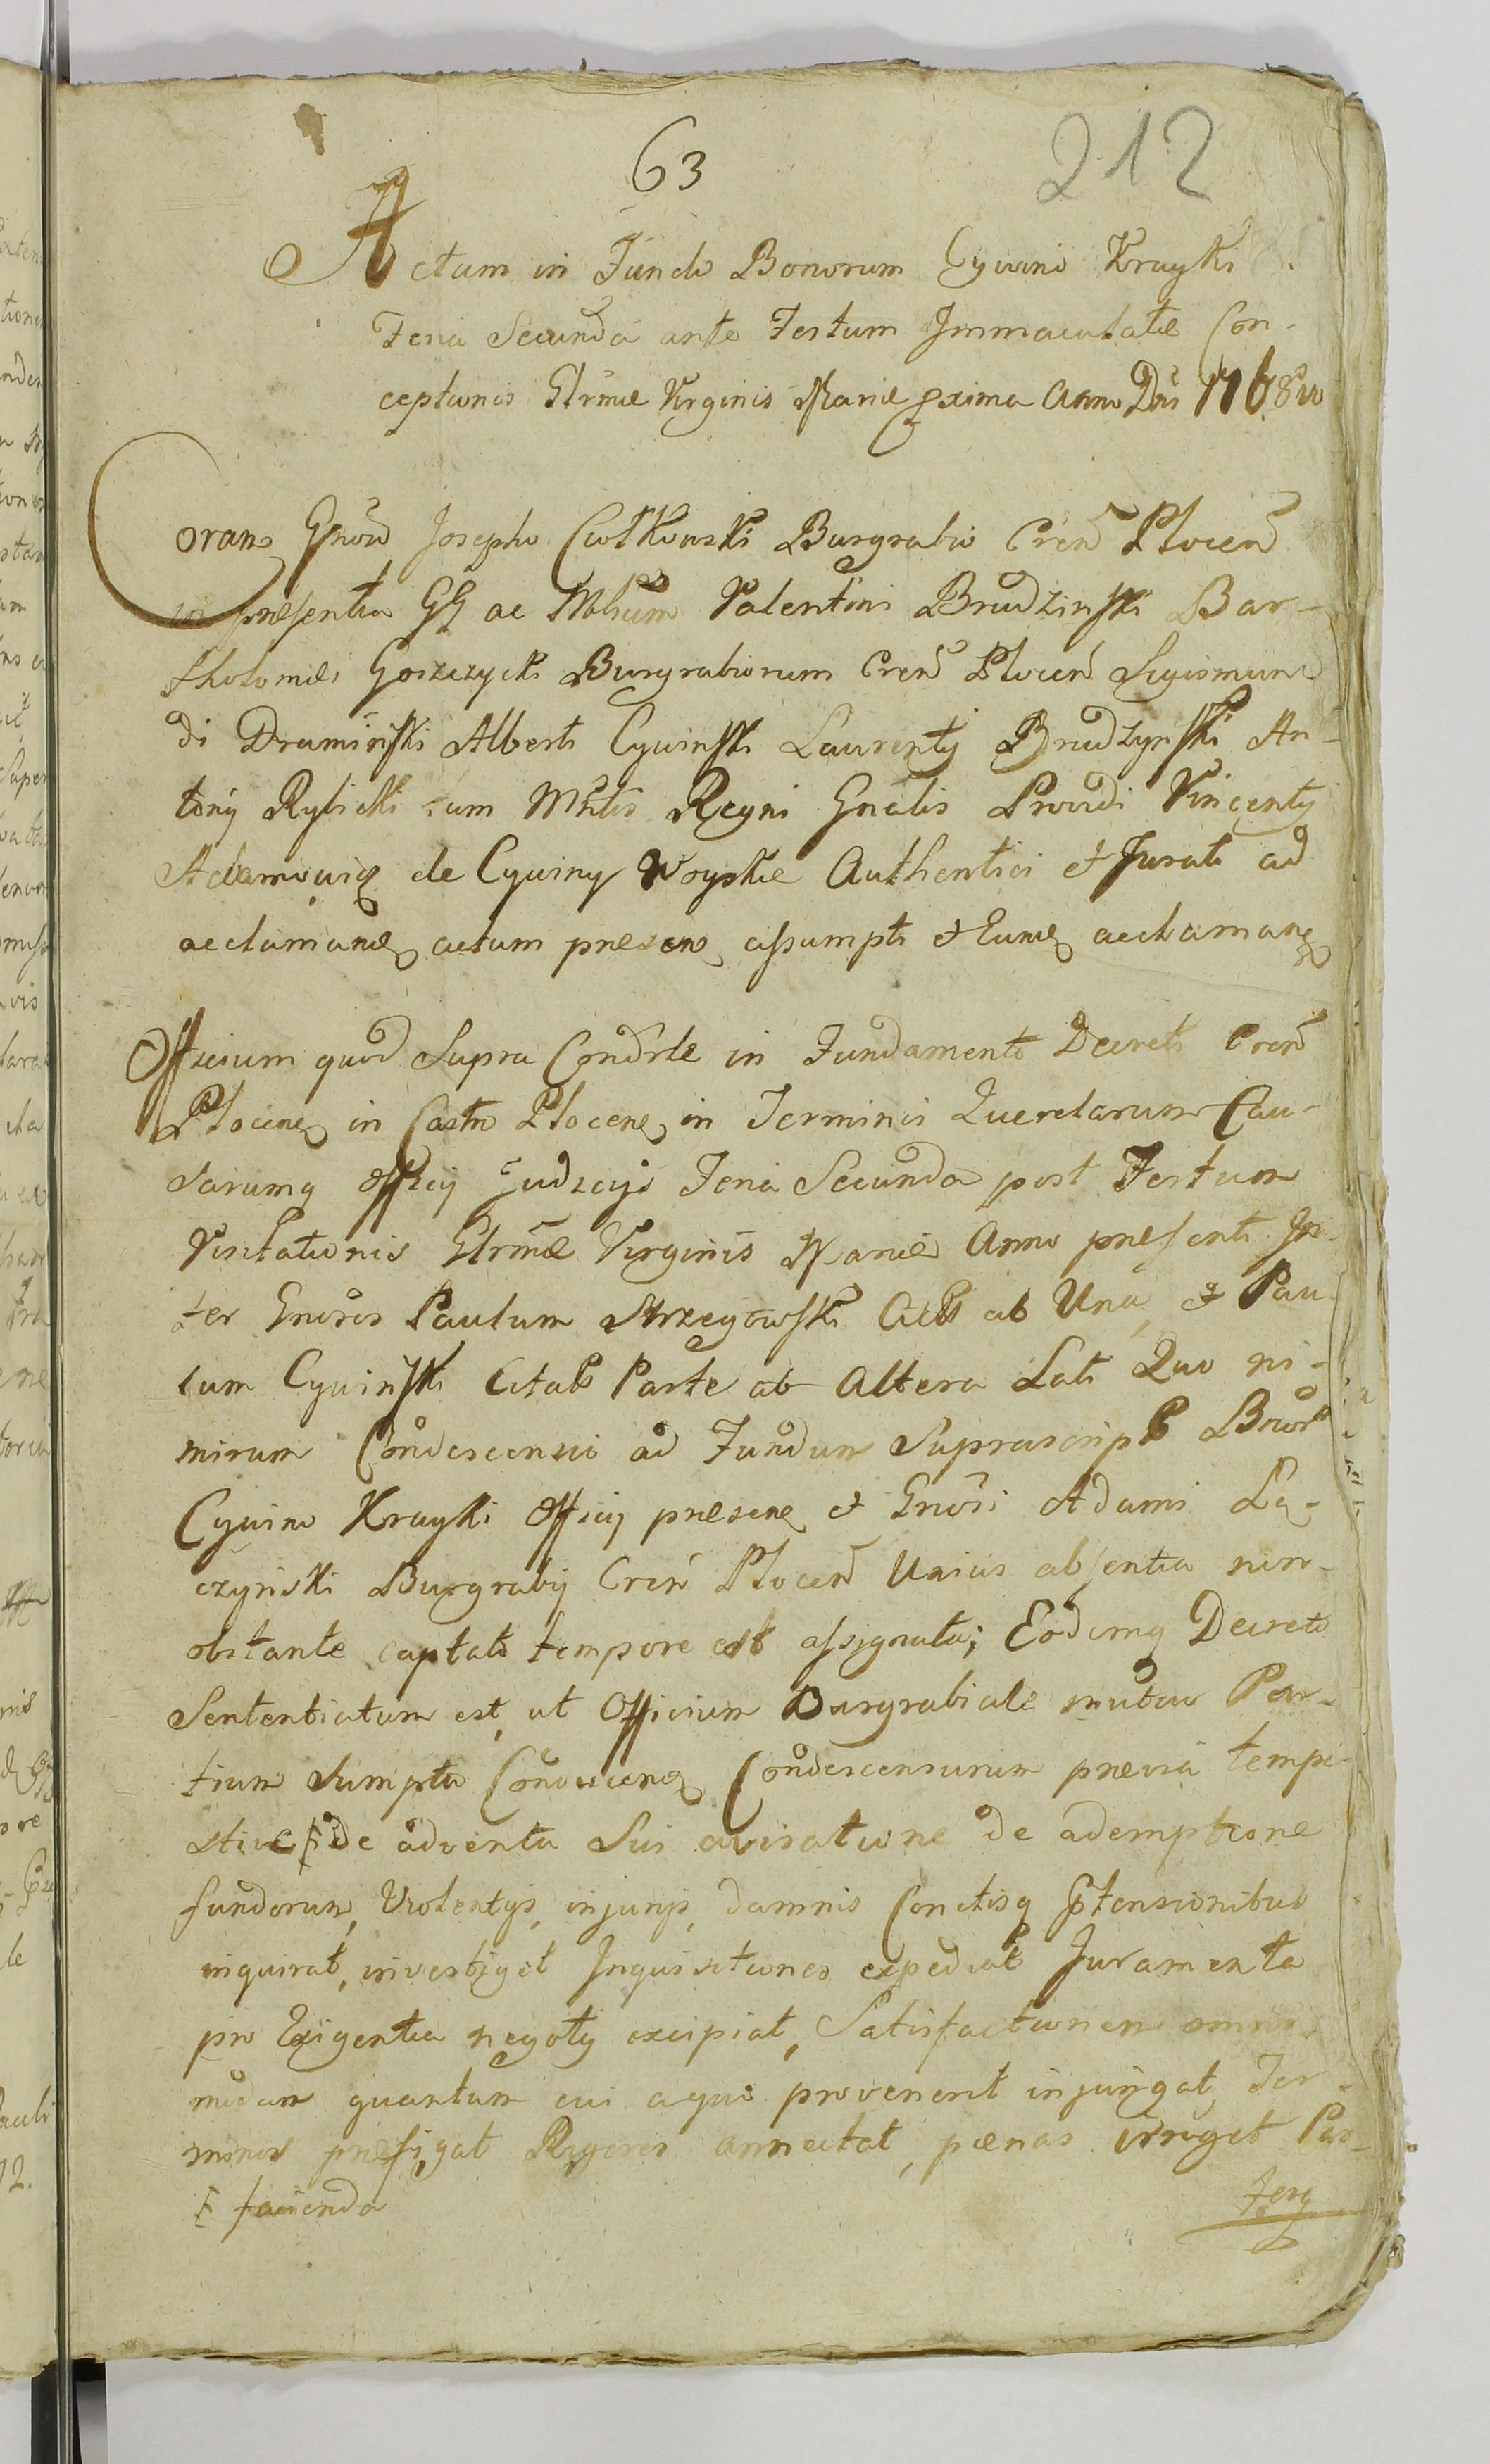 63
212
Actum in Fundo Bonorum Cywino Krayki
Feria Secunda ante Festum Immaculatæ Con-
ceptionis Glrmæ Virginis Mariæ proxima Anno Dni 1768vo
Coram Gnoso Josepho Ciołkowski Burgrabio Cren Plocen
in præsentia GG ac Nblium Valentini Brudzinski Bar-
tholomæi Goszczycki Burgrabiorum Cren Plocen Sigismun
di Draminski Alberti Cywinski Laurentij Brudzynski An-
tonij Rylicki tum Mnlis Regni Gnalis Providi Vincentij
Adamowicz de Cywiny Woyskie Authentici et Jurati ad
acclamanq actum præsenq assumpti et Eumq acclamanq
Officium quod Supra Condole in Fundamento Decreti Cren
Plocenq in Castro Plocenq in Terminis Querelarum Cau-
sarumq Officij Judicijs Feria Secunda post Festum
Visitationis Glrmæ Virginis Mariæ Anno præsenti In-
ter Gnosos Paulum Strzegowski ab Una, et Pau
lum Cywinski Parte ab Altera Lati Quo ni-
mirum Condescensio ad Fundum Suprascript Bnor
Cywino Krayki Officij præsenq et Gnosi Adami Łą-
czyński Burgrabij Cren Plocen Unius absentia non-
obstante captato tempore est assignata; Eodemq Decreto
Sententiatum est, ut Officium Burgrabiale mutuo Par-
tium Sumptu Conducenq Condescensurum prævia tempe-
stive de adventu Sui avisatione de ademptione
fundorum, Violentijs, injurijs, damnis Cunctisq ptensionibus
inquirat, investiget Inquisitiones expediat Juramenta
pro Exigentia negotij excipiat, Satisfactionem omni
modam quantum cui aquo provenerit injungat, Ter-
minos præfigat Rigores annectat, pænas irroget Par-
faciend​a
tesq